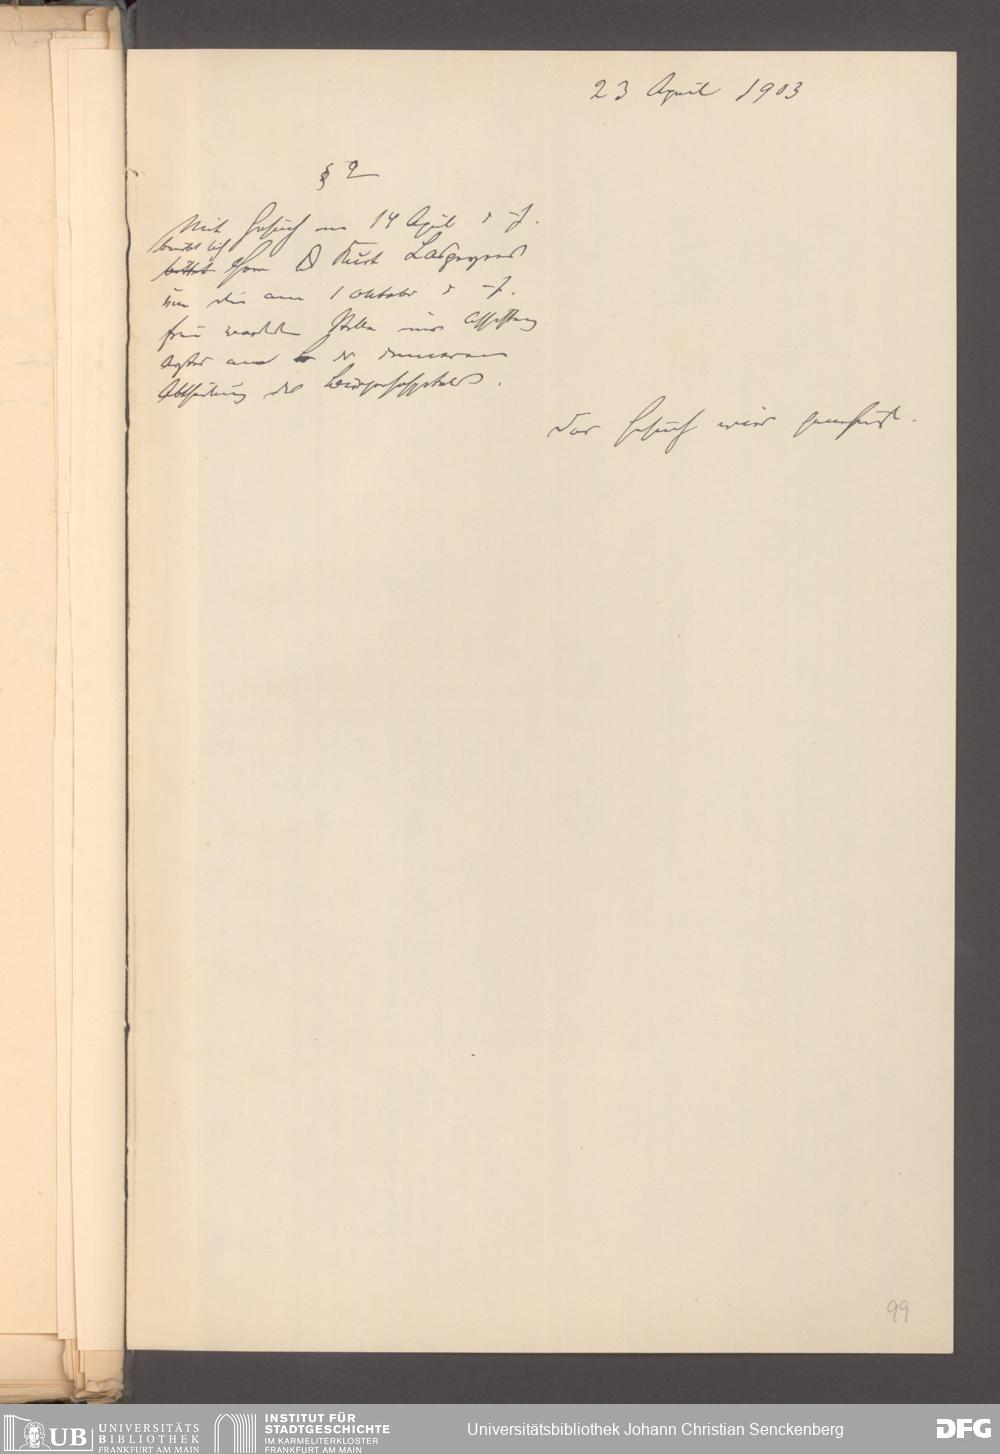 23 April 1903
§ 2
Mit Gesuch vom 14 April d. J.
bewirbt sich
bittet Herr Dr Kurt
um die am 1 Oktober d. J.
frei werdende Stelle eines Assistenz
arztes an der inneren
Abtheilung des Bürgerhospitals.
Das Gesuch wird genehmigt.
99
UB UNIVERSITÄTS
BIBLIOTHEK
FRANKFURT AM MAIN
INSTITUT FÜR
STADTGESCHICHTE
IM KARMELITERKLOSTER
FRANKFURT AM MAIN
Universitätsbibliothek Johann Christian Senckenberg
DFG